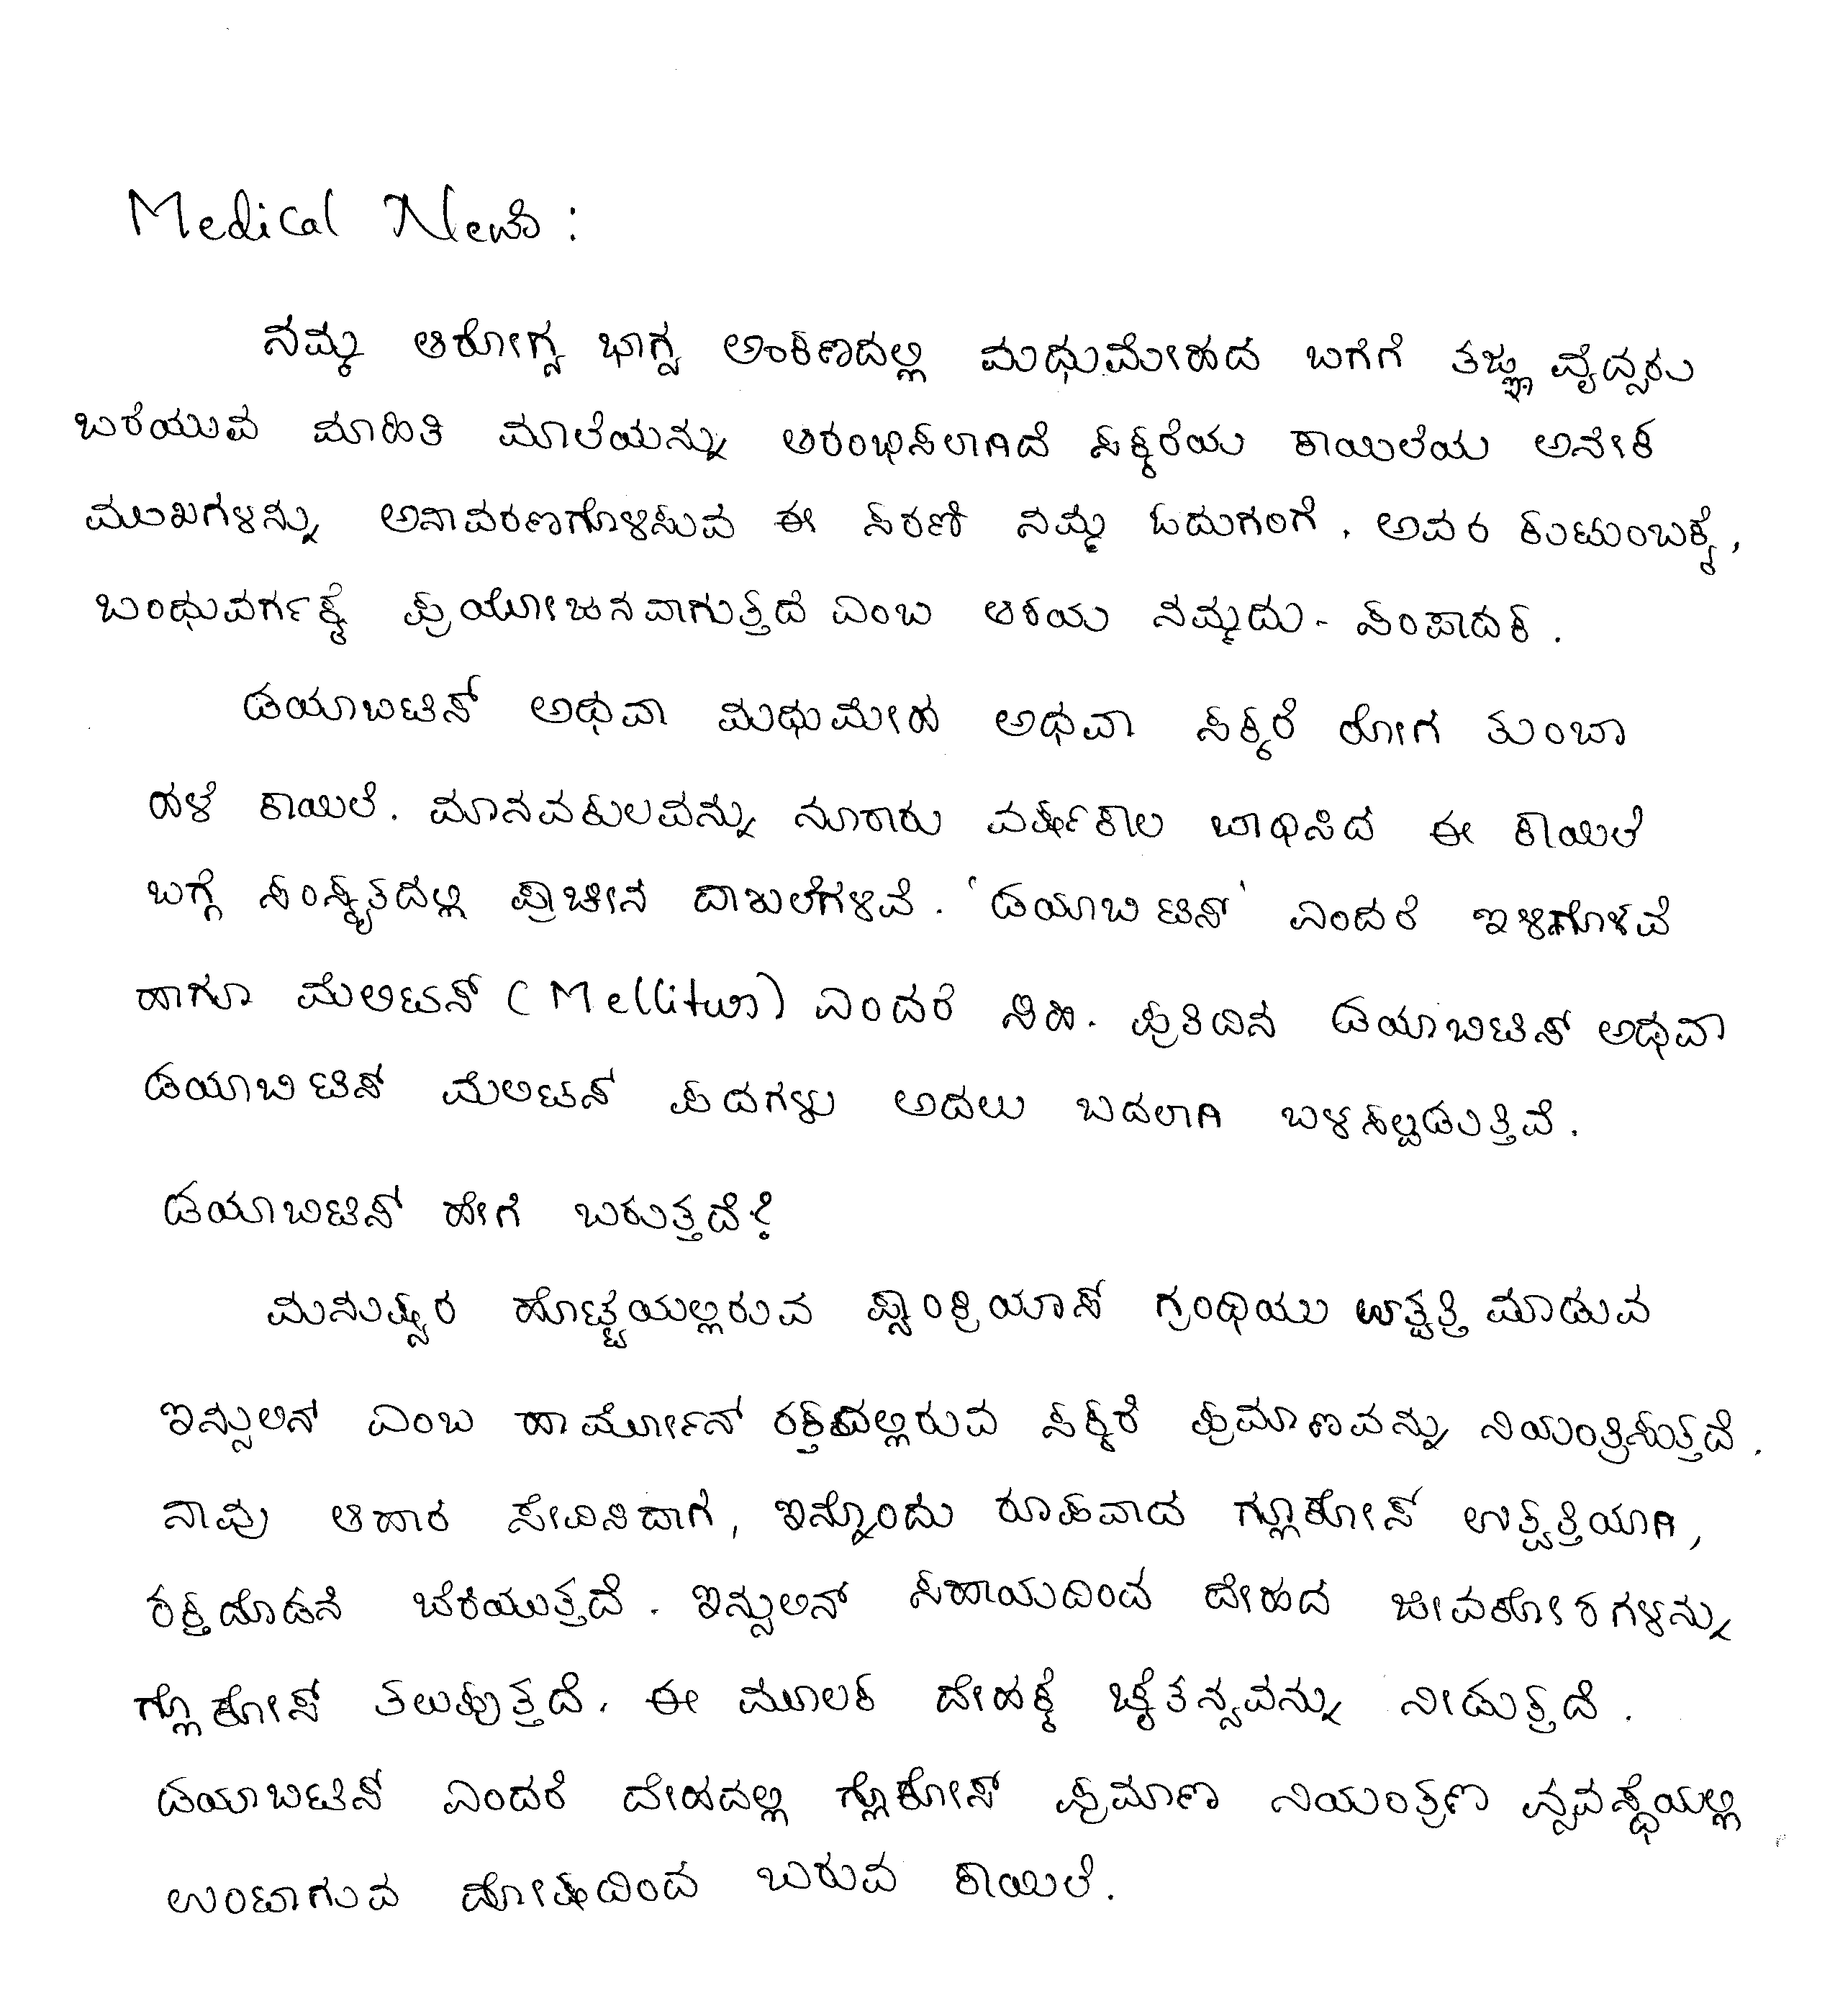 Medical News :
ನಮ್ಮ ಆರೋಗ್ಯ ಭಾಗ್ಯ ಅಂಕಣದಲ್ಲಿ ಮಧುಮೇಹದ ಬಗೆಗೆ ತಜ್ಞ ವೈದ್ಯರು
ಬರೆಯುವ ಮಾಹಿತಿ ಮಾಲೆಯನ್ನು ಆರಂಭಿಸಲಾಗಿದೆ ಸಕ್ಕರೆಯ ಕಾಯಿಲೆಯ ಅನೇಕ
ಮುಖಗಳನ್ನು ಅನಾವರಣಗೊಳಿಸುವ ಈ ಸರಣಿ ನಮ್ಮ ಓದುಗರಿಗೆ , ಅವರ ಕುಟುಂಬಕ್ಕೆ ,
ಬಂಧುವರ್ಗಕ್ಕೆ ಪ್ರಯೋಜನವಾಗುತ್ತದೆ ಎಂಬ ಆಶಯ ನಮ್ಮದು - ಸಂಪಾದಕ .
ಡಯಾಬಿಟಿಸ್ ಅಥವಾ ಮಧುಮೇಹ ಅಥವಾ ಸಕ್ಕರೆ ರೋಗ ತುಂಬಾ
ಹಳೆ ಕಾಯಿಲೆ . ಮಾನವಕುಲವನ್ನು ನೂರಾರು ವರ್ಷಕಾಲ ಬಾಧಿಸಿದ ಈ ಕಾಯಿಲೆ
ಬಗ್ಗೆ ಸಂಸ್ಕೃತದಲ್ಲಿ ಪ್ರಾಚೀನ ದಾಖಲೆಗಳಿವೆ . ‘ ಡಯಾಬಿಟಿಸ್ ’ ಎಂದರೆ ಇಳಿಗೊಳವೆ
ಹಾಗೂ ಮೆಲಿಟಸ್ ( Mellitus ) ಎಂದರೆ ಸಿಹಿ . ಪ್ರತಿದಿನ ಡಯಾಬಿಟಿಸ್ ಅಥವಾ
ಡಯಾಬಿಟಿಸ್ ಮೆಲಿಟಸ್ ಪದಗಳು ಅದಲು ಬದಲಾಗಿ ಬಳಸಲ್ಪಡುತ್ತಿವೆ .
ಡಯಾಬಿಟಿಸ್ ಹೇಗೆ ಬರುತ್ತದೆ ?
ಮನುಷ್ಯರ ಹೊಟ್ಟೆಯಲ್ಲಿರುವ ಪ್ಯಾಂಕ್ರಿಯಾಸ್ ಗ್ರಂಥಿಯು ಉತ್ಪತ್ತಿ ಮಾಡುವ
ಇನ್ಸುಲಿನ್ ಎಂಬ ಹಾರ್ಮೋನ್ ರಕ್ತದಲ್ಲಿರುವ ಸಕ್ಕರೆ ಪ್ರಮಾಣವನ್ನು ನಿಯಂತ್ರಿಸುತ್ತದೆ .
ನಾವು ಆಹಾರ ಸೇವಿಸಿದಾಗ , ಇನ್ನೊಂದು ರೂಪವಾದ ಗ್ಲೂಕೋಸ್ ಉತ್ಪತ್ತಿಯಾಗಿ ,
ರಕ್ತದೊಡನೆ ಬೆರೆಯುತ್ತದೆ . ಇನ್ಸುಲಿನ್ ಸಹಾಯದಿಂದ ದೇಹದ ಜೀವಕೋಶಗಳನ್ನು
ಗ್ಲೂಕೋಸ್ ತಲುಪುತ್ತದೆ . ಈ ಮೂಲಕ ದೇಹಕ್ಕೆ ಚೈತನ್ಯವನ್ನು ನೀಡುತ್ತದೆ .
ಡಯಾಬಿಟಿಸ್ ಎಂದರೆ ದೇಹದಲ್ಲಿ ಗ್ಲೂಕೋಸ್ ಪ್ರಮಾಣ ನಿಯಂತ್ರಣ ವ್ಯವಸ್ಥೆಯಲ್ಲಿ
ಉಂಟಾಗುವ ದೋಷದಿಂದ ಬರುವ ಕಾಯಿಲೆ .